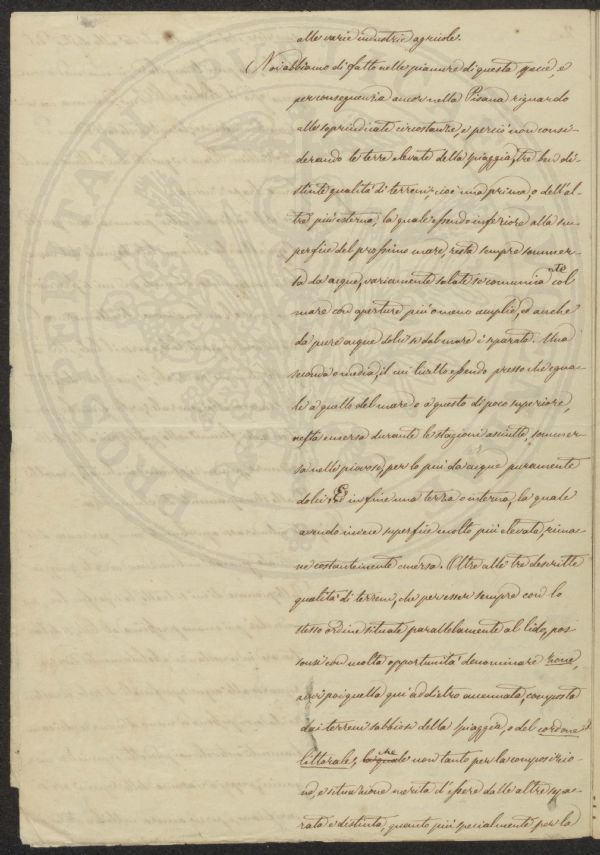 alle varie industrie agricole.
Noi abbiamo di fatto nelle pianure di questa specie, e
per conseguenza ancor nella Pisana riguardo
alle sopraindicate circostanze, e perciò non consi-
derando le terre elevate della spiaggia, tre ben di-
stinte qualità di terreni; cioè una prima, o dell'al-
tre più esterna, la quale essendo inferiore alla su-
perficie del prossimo mare, resta sempre sommer-
sa da acque, variamente salate se comunicante col
mare con aperture più o meno amplie, ed anche
da pure acque dolci se dal mare è separata. Una
seconda o media, il cui livello essendo presso che egua-
le a quello del mare o a questo di poco superiore,
resta emersa durante le stagioni asciutte, sommer-
sa nelle piovose, per lo più da acque puramente
dolci. E infine una terza o interna, la quale
avendo invece superficie molto più elevata, rima-
ne costantemente emersa. Oltre alle tre descritte
qualità di terreni, che per esser sempre con lo
stesso ordine situate parallelamente al lido, pos-
sonsi con molta opportunità denominare zone,
avvi poi quella qui addietro accennata, composta
dai terreni sabbiosi della spiaggia, o del cordone
littorale, la quale che non tanto per la composizio-
ne, e situazione merita d'essere dalle altre sepa-
rata e distinta quanto più specialmente per la
PROSPERITATI